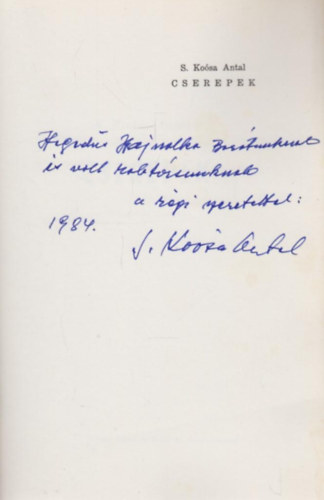 S. Koósa Antal
CSEREPEK
Hegedüs Hajnalka Barátunknak
és volt szobatársunknak
a régi szeretettel:
1984.
S. Koósa Antal